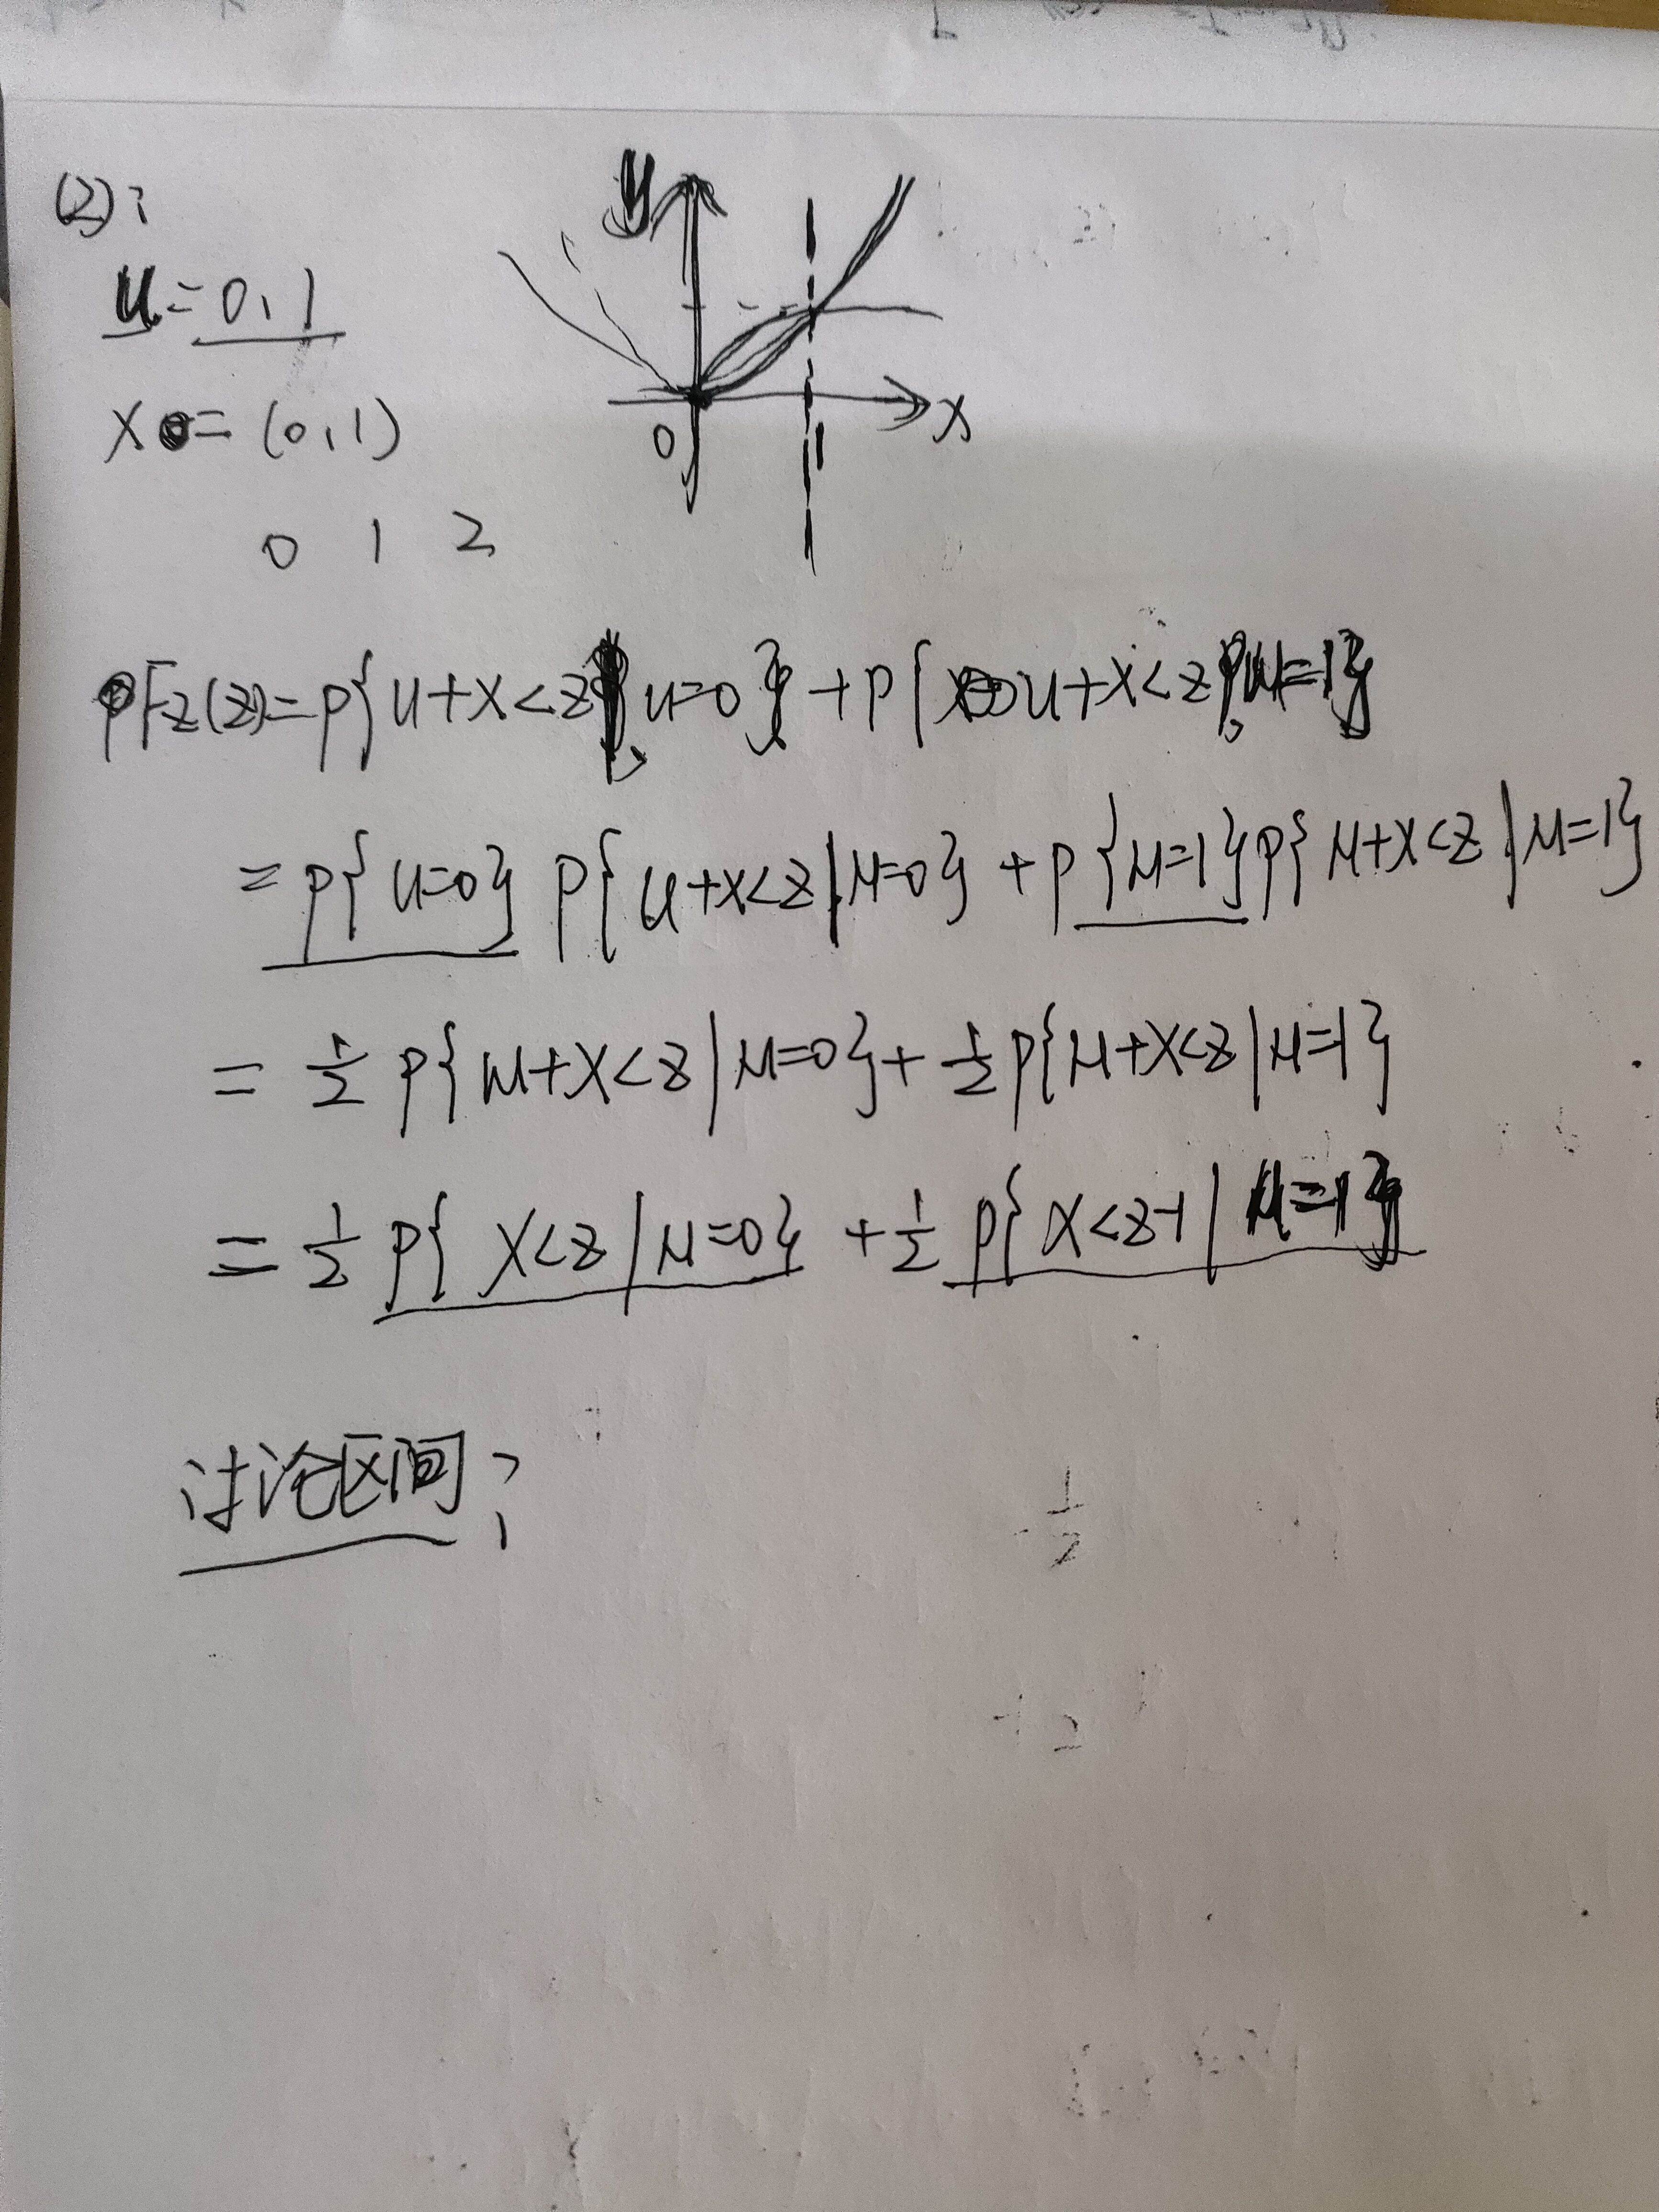 (2):
u=0,1
x=(0,1)
0 1 2
y
0 1 x
Fz(z)=p{u+x<z,u=0}+p{u+x<z,u=1}
=p{u=0}p{u+x<z|u=0}+p{u=1}p{u+x<z|u=1}
=½p{u+x<z|u=0}+½p{u+x<z|u=1}
=½p{x<z|u=0}+½p{x<z-1|u=1}
讨论区间?